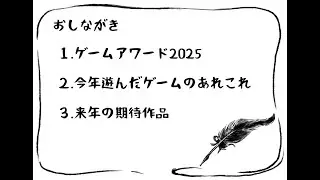 おしながき
1.ゲームアワード2025
2.今年遊んだゲームのあれこれ
3.来年の期待作品